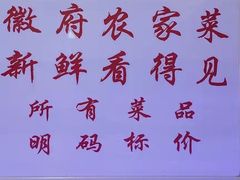 徽府农家菜
新鲜看得见
所有菜品
明码标价